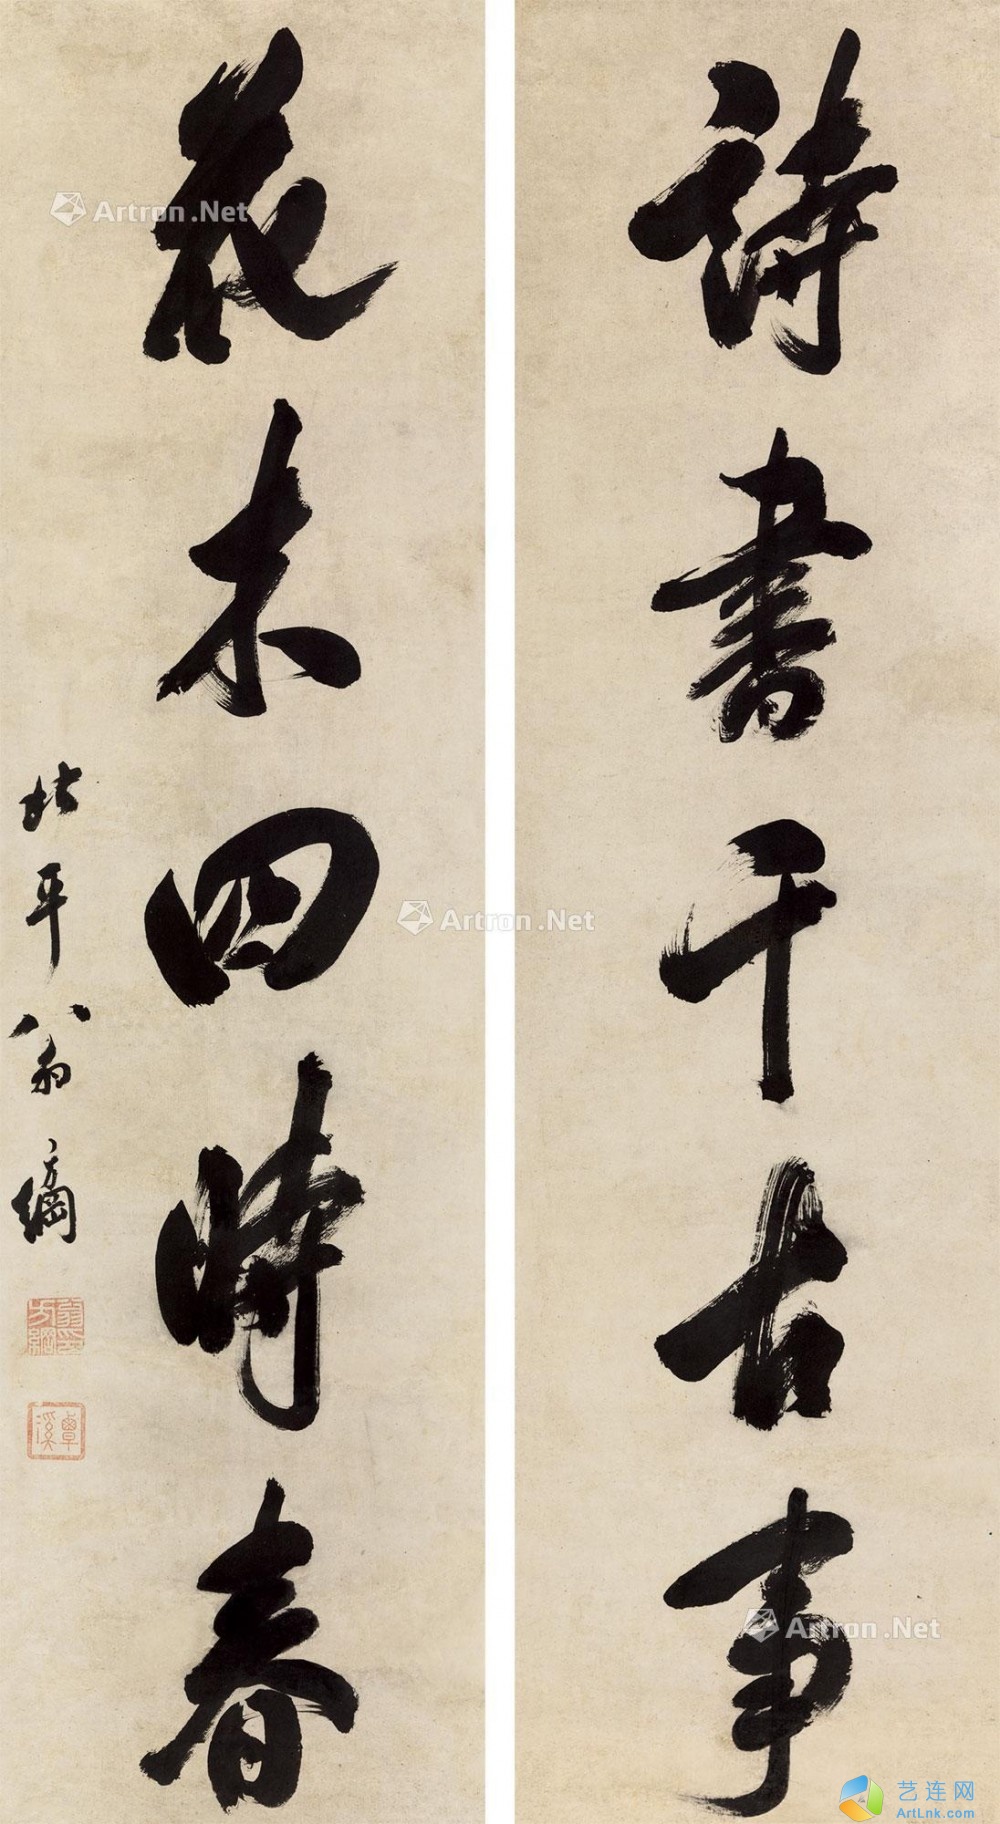 詩書千古事
花木四時春
北平翁方綱
翁方綱印
覃溪
Artron.Net
Artron.Net
Artron.Net
艺连网
ArtLnk.com